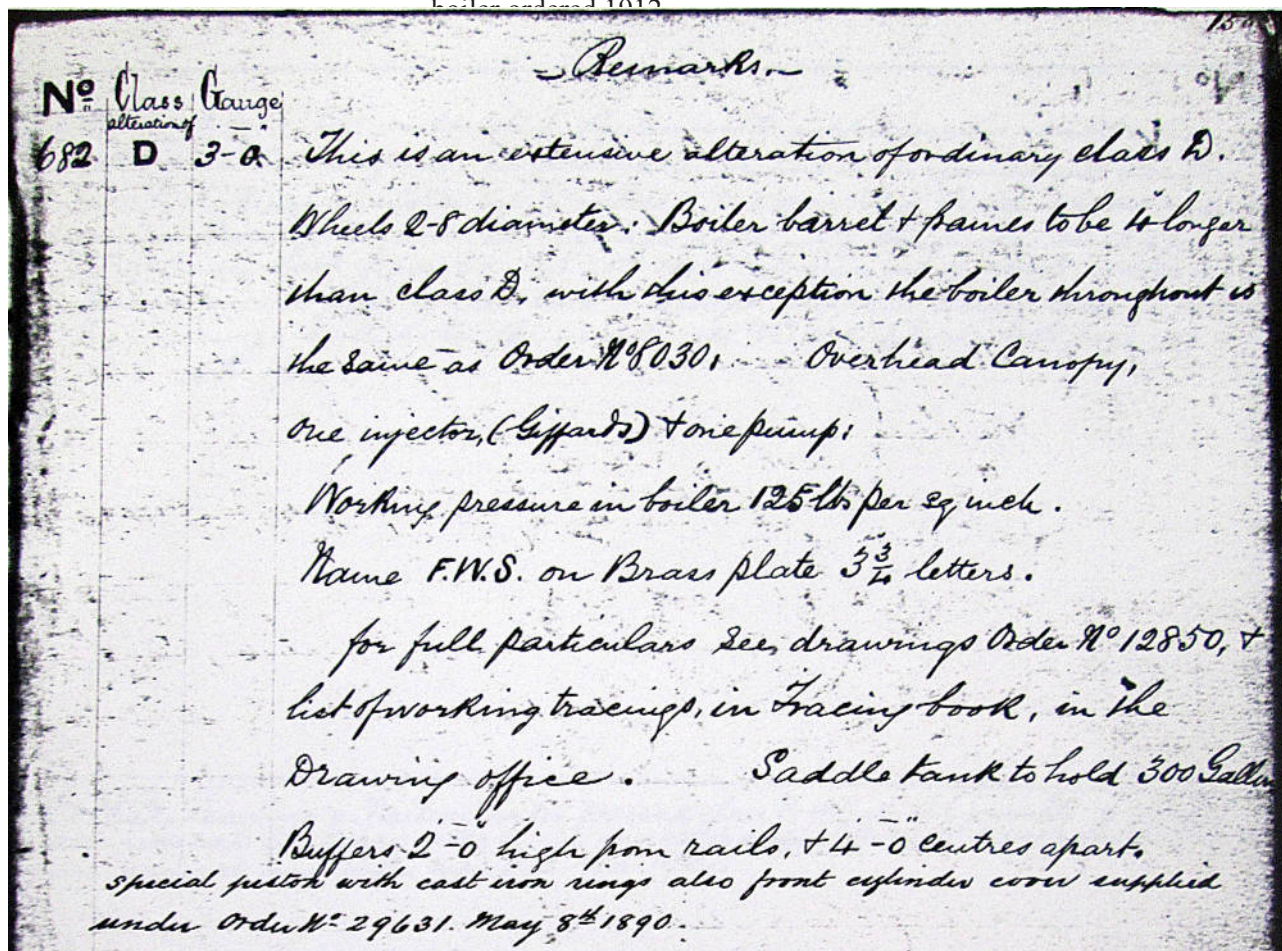 boiler ordered 1912
- Remarks. -
No Class Gauge
alteration of
682 D 3-0" This is an extensive alteration of ordinary class D.
Wheels 2-8 diameter. Boiler barrel & frames to be 4" longer
than class D, with this exception the boiler throughout is
the same as Order No 8030. Overhead Canopy,
One injector, (Giffards) & one pump:
Working pressure in boiler 125 lbs per sq inch.
Name F.W.S. on Brass plate 3 3/4 letters.
for full particulars see, drawings Order No 12850, &
list of working tracings, in Tracing book, in the
Drawing office. Saddle tank to hold 300 Gallon
Buffers 2'-0" high from rails, & 4'-0" centres apart.
special piston with cast iron rings also front cylinder cover supplied
under Order No 29631. May 8th 1890.